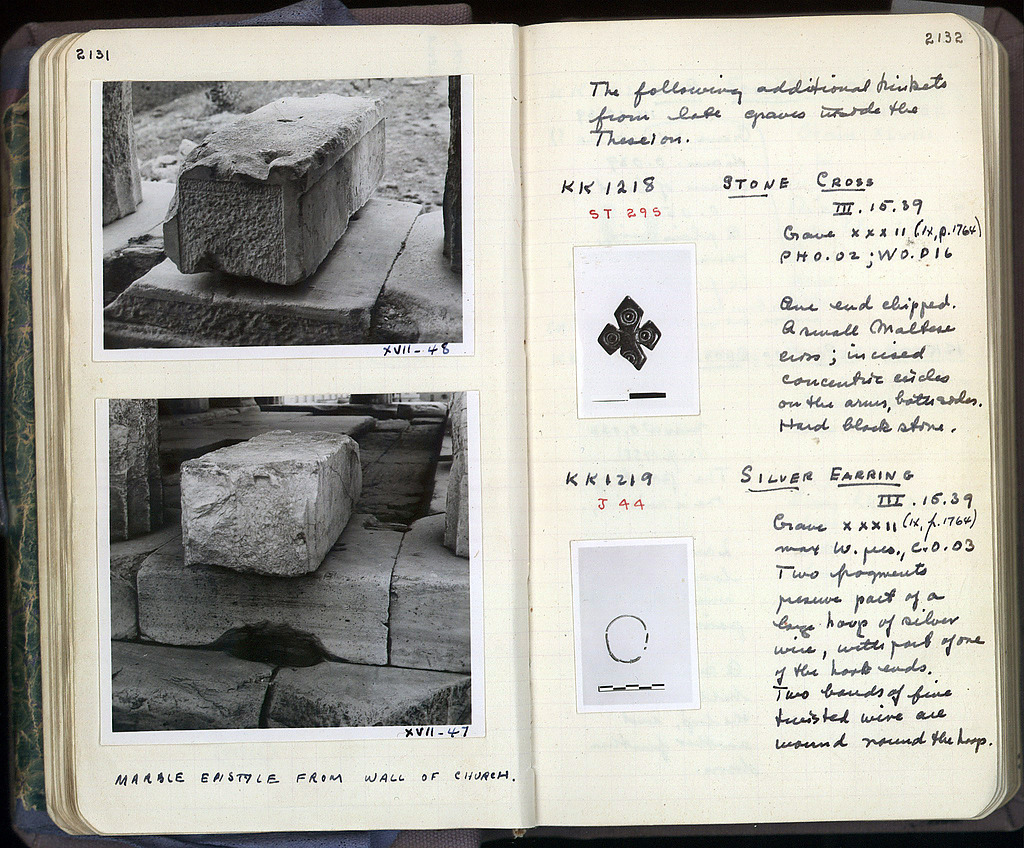 2131
XVII-48
XVII-47
MARBLE EPISTYLE FROM WALL OF CHURCH.
2132
The following additional trinkets
from late graves inside the
Theseion.
KK 1218 STONE CROSS
ST 295
III.15.39
Grave XXXII (IX, p.1764)
PH 0.02; W 0.016
One end chipped.
A small Maltese
cross; incised
concentric circles
on the arms, both sides.
Hard black stone.
KK 1219 SILVER EARRING
J 44
III.15.39
Grave XXXII (IX, p.1764)
max W. pres., C.0.03
Two fragments
preserve part of a
large hoop of silver
wire, with part of one
of the hook ends.
Two bands of fine
twisted wire are
wound round the hoop.